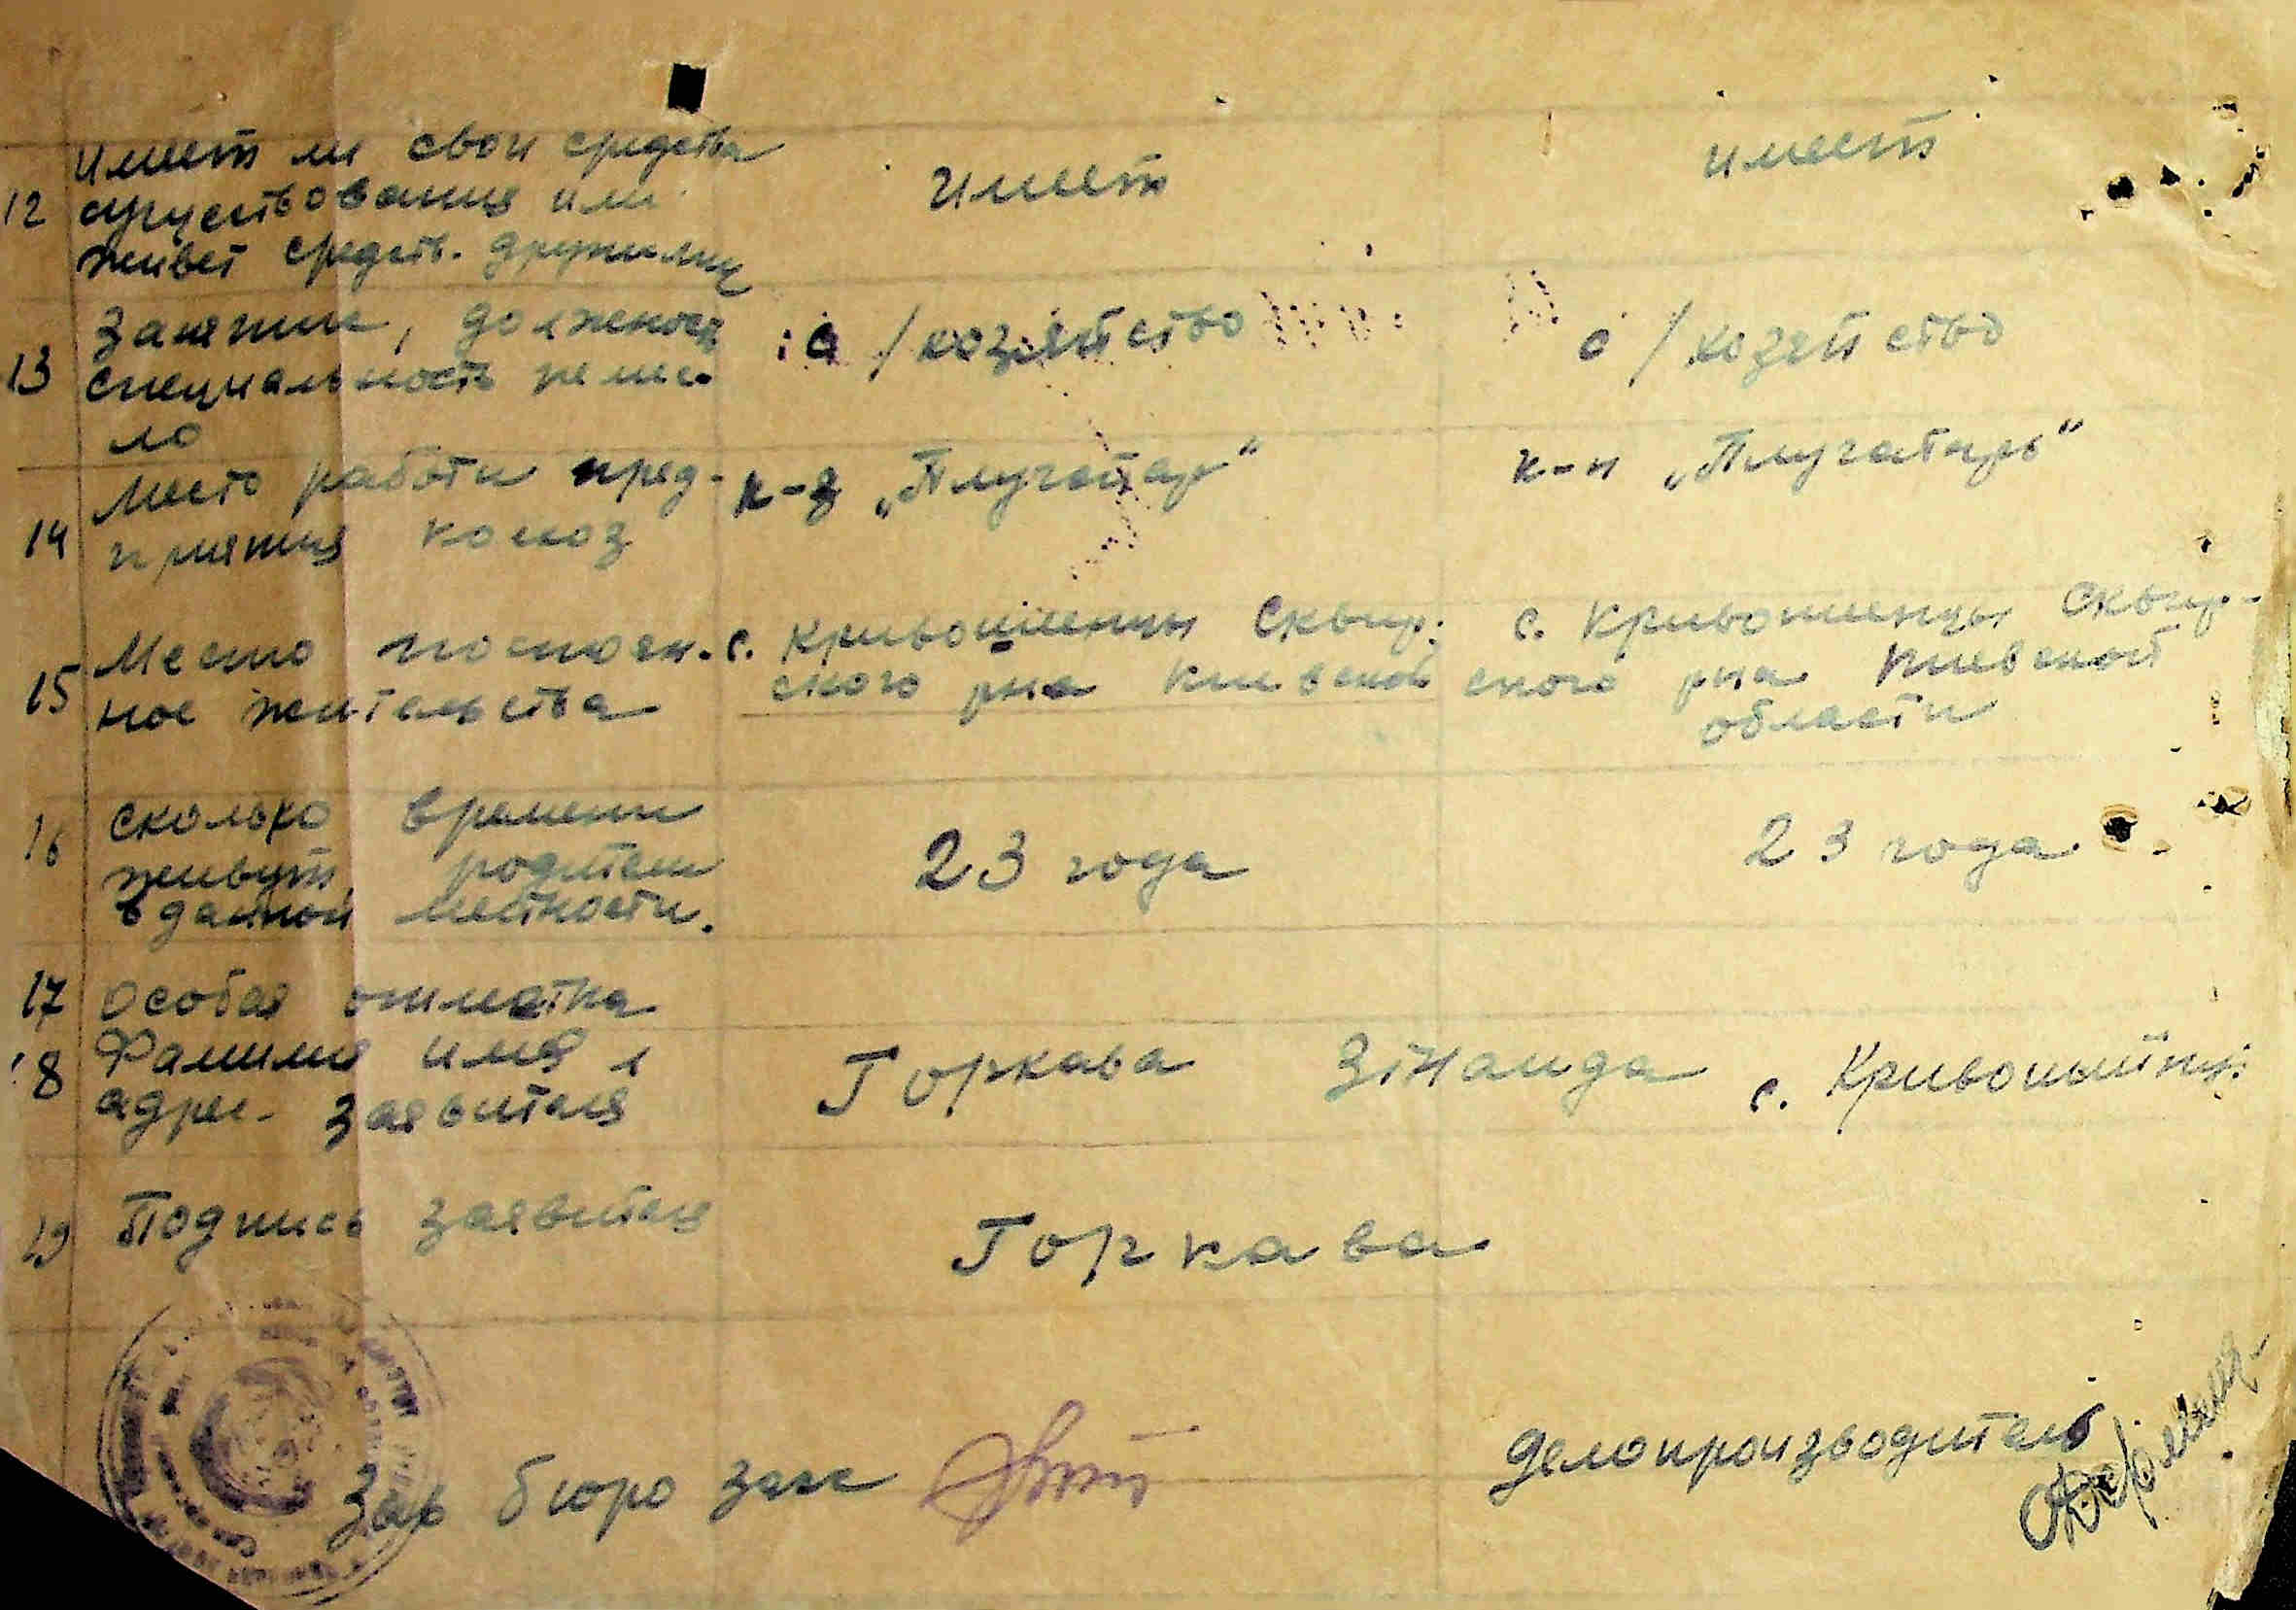 12 Имеет ли свои средства
существования или
живет средств. других лиц
имеет
имеет
13 Занятие, должность
специальность ремес-
ло
с/хозяйство
с/хозяйство
14 Место работы пред-
приятия колхоз
к-з „Плугатар“
к-н „Плугатарь“
15 Место постоян.
ное жительства
с. Кривошиенцы Сквир.
ского рна Киевской
с. Кривошиенцы Сквир-
ского рна Киевской
области
16 Сколько времени
живут родители
в данной местности.
23 года
23 года
17 Особая отметка
18 Фамилия имя и
адрес заявителя
Горкава Зінаида с. Кривошиїнці
19 Подпись заявителя
Горкава
Зав бюро загс
Делопроизводитель